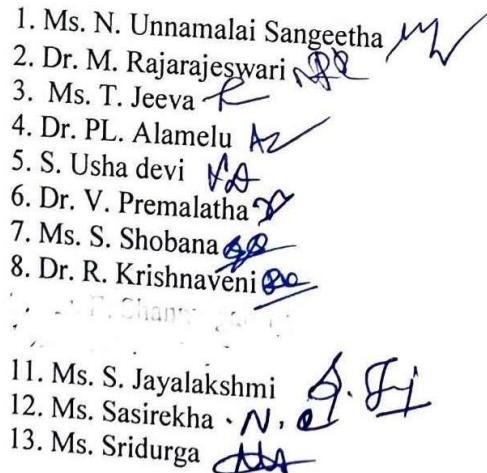 1. Ms. N. Unnamalai Sangeetha
2. Dr. M. Rajarajeswari
3. Ms. T. Jeeva
4. Dr. PL. Alamelu
5. S. Usha devi
6. Dr. V. Premalatha
7. Ms. S. Shobana
8. Dr. R. Krishnaveni
11. Ms. S. Jayalakshmi
12. Ms. Sasirekha . N.
13. Ms. Sridurga